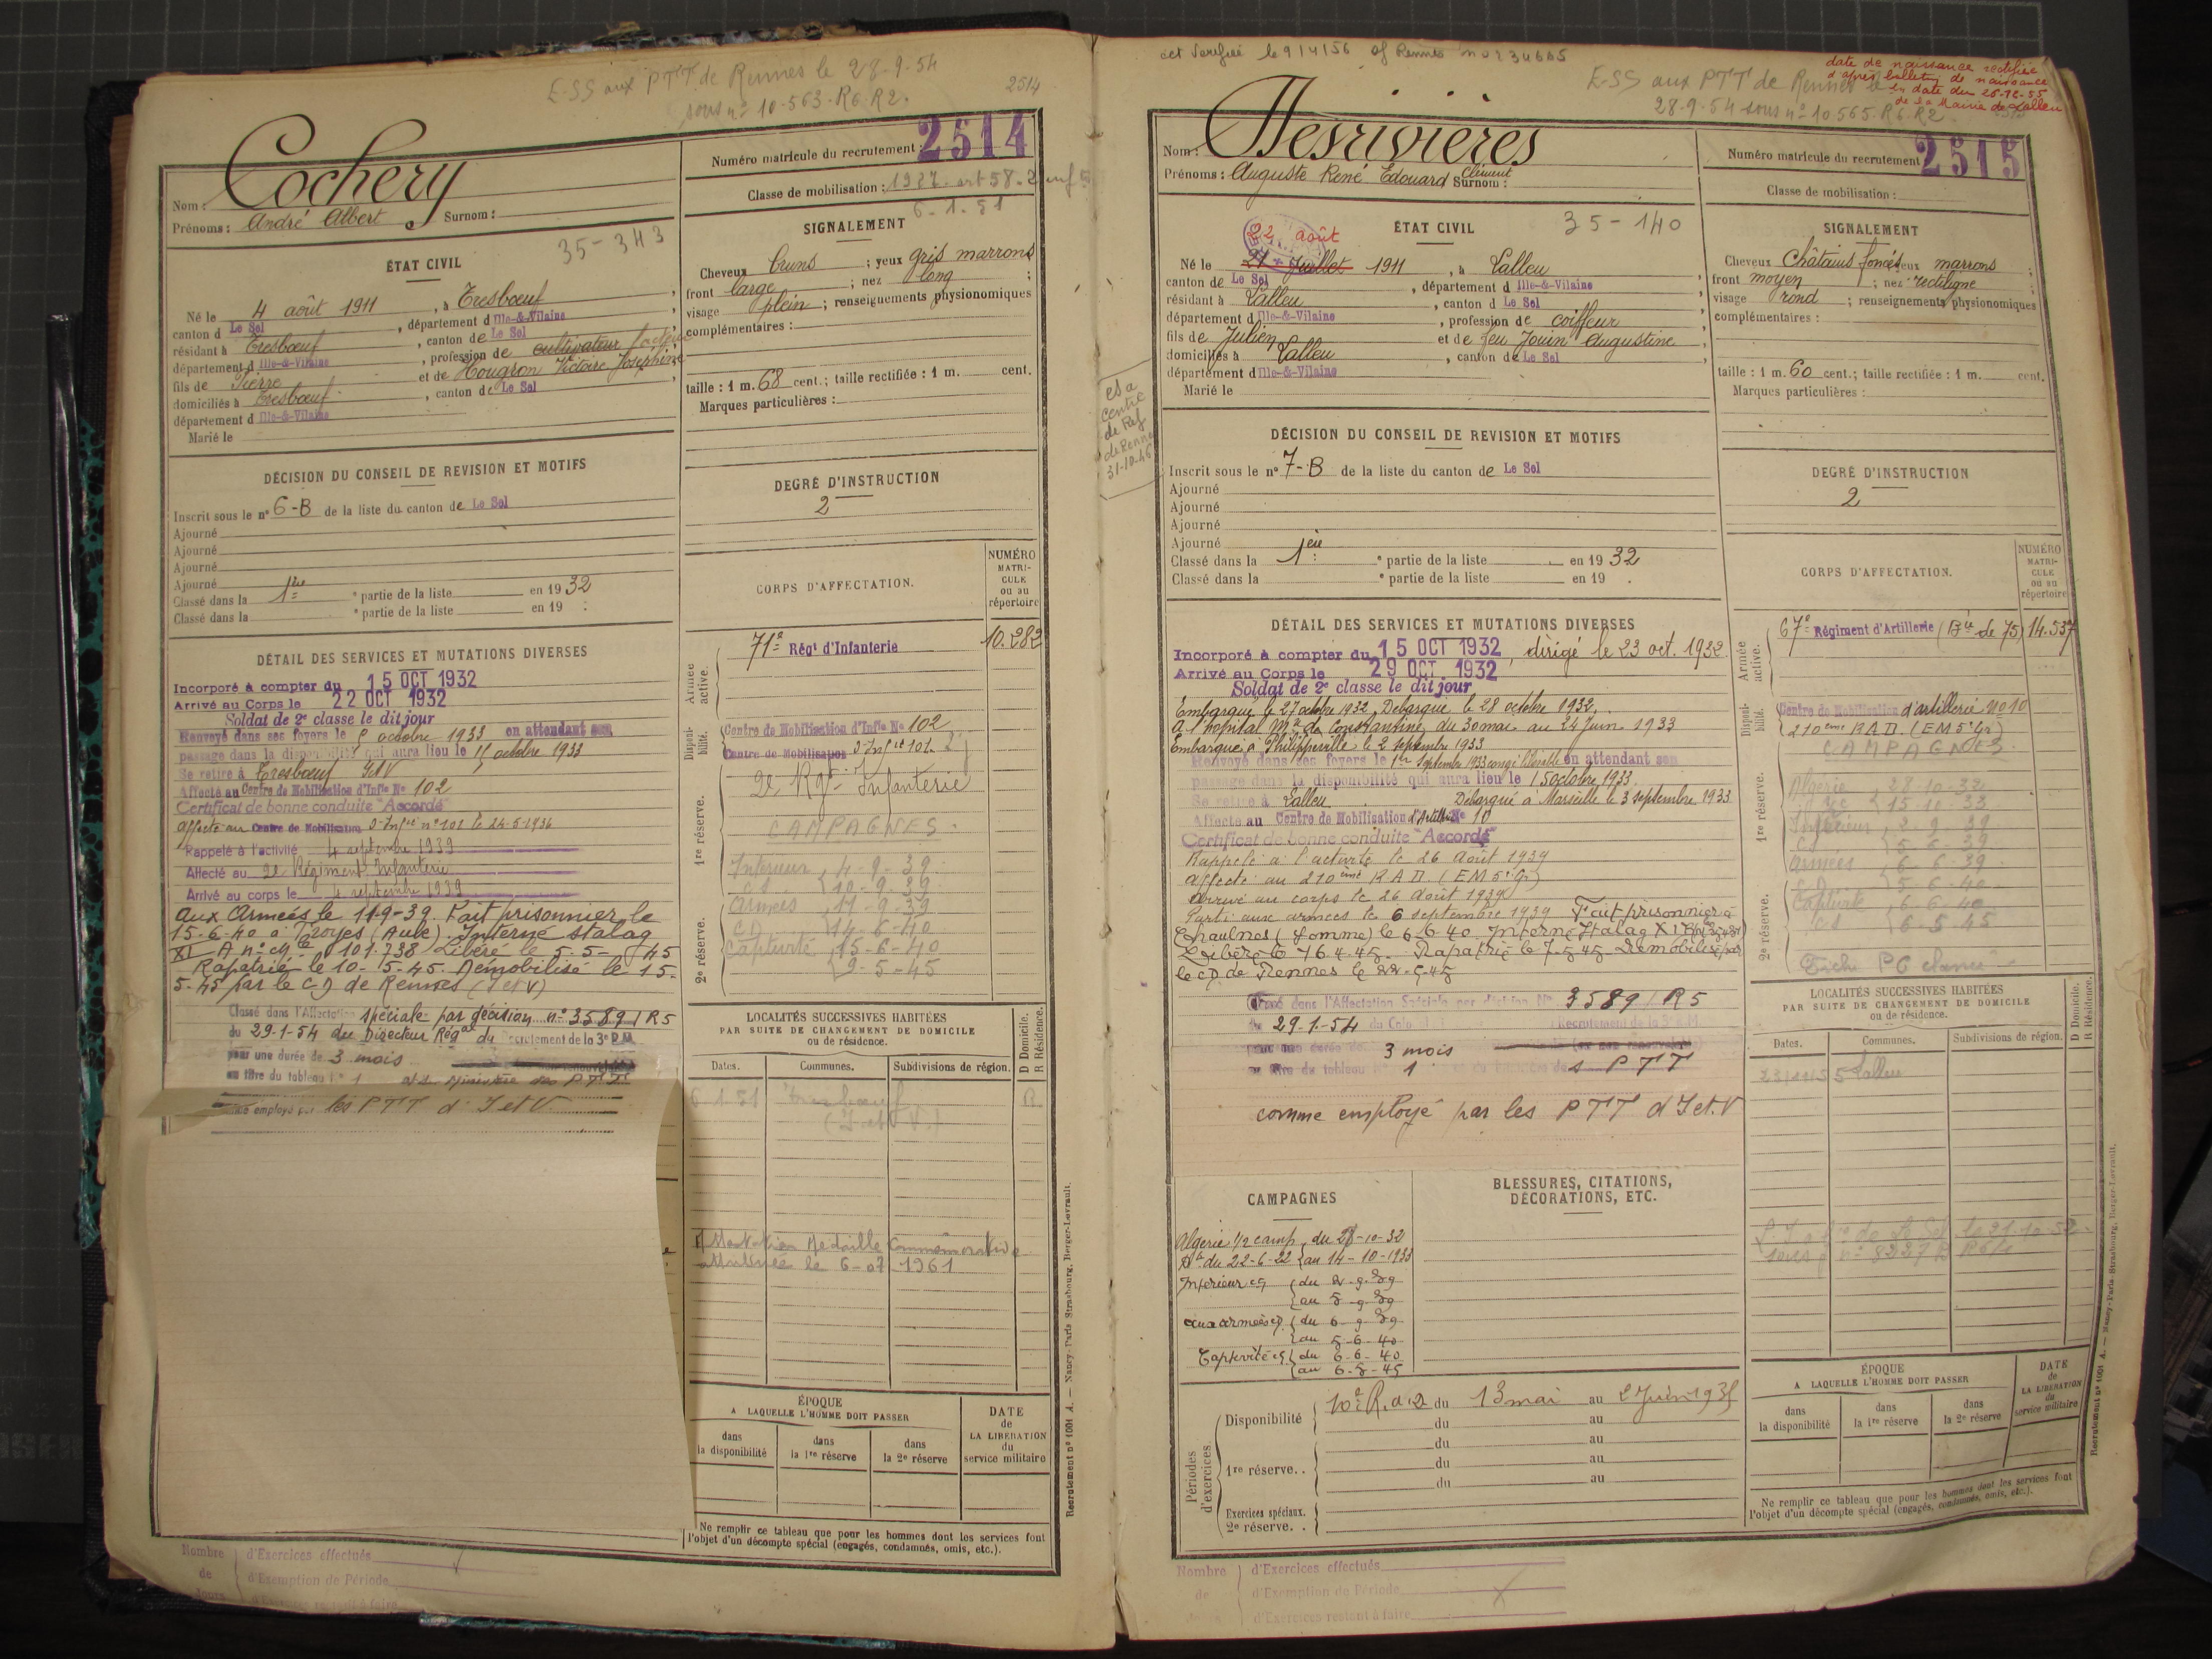 E-SS aux PTT de Rennes le 28-9-54
sous n° 10-563-R6.R2.
2514
Nom : Cochery
Prénoms : André Albert Surnom :
35-343
ÉTAT CIVIL
Né le 4 août 1911, à Tresbœuf,
canton d Le Sel, département d Ille-&-Vilaine
résidant à Tresbœuf, canton de Le Sel
département d Ille-&-Vilaine, profession de cultivateur
fils de Pierre et de Hougron Victoire Joséphine
domiciliés à Tresbœuf, canton de Le Sel
département d Ille-&-Vilaine
Marié le
DÉCISION DU CONSEIL DE REVISION ET MOTIFS
Inscrit sous le n° 6-B de la liste du canton de Le Sel
Ajourné
Ajourné
Ajourné
Ajourné
Classé dans la 1re e partie de la liste en 1932
Classé dans la e partie de la liste en 19 .
DÉTAIL DES SERVICES ET MUTATIONS DIVERSES
Incorporé à compter du 15 OCT 1932
Arrivé au Corps le 22 OCT 1932
Soldat de 2e classe le dit jour
Renvoyé dans ses foyers le octobre 1933 en attendant son
passage dans la disponibilité qui aura lieu le 15 octobre 1933
Se retire à Tresbœuf I&V
Affecté au Centre de Mobilisation d'Infie No 102
Certificat de bonne conduite "Accordé"
Affecté au Centre de Mobilisation d'Infrie n° 101 le 24-5-1936
Rappelé à l'activité 4 septembre 1939
Affecté au 2e Régiment Infanterie
Arrivé au corps le 4 septembre 1939
Aux Armées le 11-9-39. Fait prisonnier le
15-6-40 à Troyes (Aube). Interné stalag
XI A n° Mle 101.738 Libéré le 5-5-45
Rapatrié le 10-5-45. Démobilisé le 15-
5-45 par le CD de Rennes (I et V)
Classé dans l'Affectation spéciale par décision n° 3589/R5
du 29-1-54 du Directeur Régal du Recrutement de la 3e R.M.
pour une durée de 3 mois
au titre du tableau N° 1 du Ministère des PTT
comme employé par les PTT d'I et V
Numéro matricule du recrutement : 2514
Classe de mobilisation : 1927. art 58. 2 enf
6-1-51
SIGNALEMENT
Cheveux bruns ; yeux gris marrons
front large ; nez long ;
visage plein ; renseignements physionomiques
complémentaires :
taille : 1 m. 68 cent. ; taille rectifiée : 1 m. cent.
Marques particulières :
DEGRÉ D'INSTRUCTION
2
CORPS D'AFFECTATION.
NUMÉRO MATRI-CULE ou au répertoire
Armée active.
71e Régt d'Infanterie 10.282
Disponi-bilité.
Centre de Mobilisation d'Infie No 102
Centre de Mobilisation d'Infrie 101
1re réserve.
2e Rgt Infanterie
CAMPAGNES.
Intérieur, 4-9-39
CS 10-9-39
2e réserve.
Armées 11-9-39
CD 14-6-40
Captivité 15-6-40
9-5-45
LOCALITÉS SUCCESSIVES HABITÉES
PAR SUITE DE CHANGEMENT DE DOMICILE
ou de résidence.
D Domicile.
R Résidence.
Dates. Communes. Subdivisions de région.
6-1-51 Tresbœuf R
(I et V.)
Attestation Médaille Commémorative
attribuée le 6-07-1961
ÉPOQUE
A LAQUELLE L'HOMME DOIT PASSER
dans la disponibilité
dans la 1re réserve
dans la 2e réserve
DATE de LA LIBÉRATION du service militaire
Ne remplir ce tableau que pour les hommes dont les services font
l'objet d'un décompte spécial (engagés, condamnés, omis, etc.).
Recrutement n° 1001 A. — Nancy-Paris-Strasbourg, Berger-Levrault.
Nombre de Jours
d'Exercices effectués
d'Exemption de Période
d'Exercices restant à faire
ect Verifiée le 9/4/56 of Rennes no 234605
E-SS aux PTT de Rennes le
28-9-54 sous n° 10565.R6.R2
date de naissance rectifiée
d'après bulletin de naissance
en date du 26-12-55
de la Mairie de Lalleu
Nom : Desrivières
Prénoms : Auguste René Edouard Clément Surnom :
35-140
ÉTAT CIVIL
22 août
Né le 21 Juillet 1911, à Lalleu,
canton de Le Sel, département d Ille-&-Vilaine
résidant à Lalleu, canton d Le Sel
département d Ille-&-Vilaine, profession de coiffeur
fils de Julien et de feu Jouin Augustine
domiciliés à Lalleu, canton de Le Sel
département d Ille-&-Vilaine
Marié le
es a
centre
de Ref
de Rennes
31-10-46
DÉCISION DU CONSEIL DE REVISION ET MOTIFS
Inscrit sous le n° 7-B de la liste du canton de Le Sel
Ajourné
Ajourné
Ajourné
Ajourné
Classé dans la 1ère e partie de la liste en 1932
Classé dans la e partie de la liste en 19 .
DÉTAIL DES SERVICES ET MUTATIONS DIVERSES
Incorporé à compter du 15 OCT 1932, dirigé le 23 oct. 1932
Arrivé au Corps le 29 OCT 1932
Soldat de 2e classe le dit jour
Embarqué le 27 octobre 1932, Débarqué le 28 octobre 1932.
A l'hopital Mre de Constantine du 30 mai au 24 Juin 1933
Embarqué à Philippeville le 2 septembre 1933
Renvoyé dans ses foyers le 1er Septembre 1933 congé libérable en attendant son
passage dans la disponibilité qui aura lieu le 15 octobre 1933
Se retire à Lalleu Débarqué à Marseille le 3 septembre 1933
Affecté au Centre de Mobilisation d'Artillerie No 10
Certificat de bonne conduite "Accordé"
Rappelé à l'activité le 26 Août 1939
affecté au 210ème RAD. (EM 5e Gr)
arrivé au corps le 26 août 1939
Parti aux armées le 6 septembre 1939 Fait prisonnier à
Chaulnes (Somme) le 6-6-40 Interné Stalag XI B
Libéré le 16-4-45. Rapatrié le 7-5-45 Démobilisé par
le CD de Rennes le 22-5-45
Classé dans l'Affectation Spéciale par décision No 3589/R5
du 29-1-54 du Recrutement de la 3e R.M.
pour une durée de 3 mois
au titre du tableau N° 1 PTT
comme employé par les PTT d'I et V
CAMPAGNES
Algérie 1/2 camp. du 28-10-32
du 22-6-22 au 14-10-1933
Intérieur CS du 2-9-39
au 5-9-39
aux armées CD du 6-9-39
au 5-6-40
Captivité CS du 6-6-40
au 6-5-45
BLESSURES, CITATIONS,
DÉCORATIONS, ETC.
Périodes d'exercices.
Disponibilité 10e R.A.D du 13 mai au 2 Juin 1935
du au
du au
1re réserve.. du au
du au
Exercices spéciaux.
2e réserve. .
Numéro matricule du recrutement 2515
Classe de mobilisation :
SIGNALEMENT
Cheveux Châtains foncés yeux marrons ;
front moyen ; nez rectiligne
visage rond ; renseignements physionomiques
complémentaires :
taille : 1 m. 60 cent. ; taille rectifiée : 1 m. cent.
Marques particulières :
DEGRÉ D'INSTRUCTION
2
CORPS D'AFFECTATION.
NUMÉRO MATRI-CULE ou au répertoire
Armée active.
67e Régiment d'Artillerie (Bie de 75) 14.537
Disponi-bilité.
Centre de Mobilisation d'artillerie no 10
210ème RAD. (EM 5e Gr)
1re réserve.
CAMPAGNES.
Algérie, 28-10-32
15-10-33
Intérieur, 2-9-39
CS 5-6-39
armées 6-6-39
2e réserve.
CD 5-6-40
Captivité 6-6-40
CS 6-5-45
Fiche PG
LOCALITÉS SUCCESSIVES HABITÉES
PAR SUITE DE CHANGEMENT DE DOMICILE
ou de résidence.
D Domicile.
R Résidence.
Dates. Communes. Subdivisions de région.
Lalleu
ÉPOQUE
A LAQUELLE L'HOMME DOIT PASSER
dans la disponibilité
dans la 1re réserve
dans la 2e réserve
DATE de LA LIBÉRATION du service militaire
Ne remplir ce tableau que pour les hommes dont les services font
l'objet d'un décompte spécial (engagés, condamnés, omis, etc.).
Recrutement n° 1001 A. — Nancy-Paris-Strasbourg, Berger-Levrault.
Nombre de
d'Exercices effectués
d'Exemption de Période
d'Exercices restant à faire